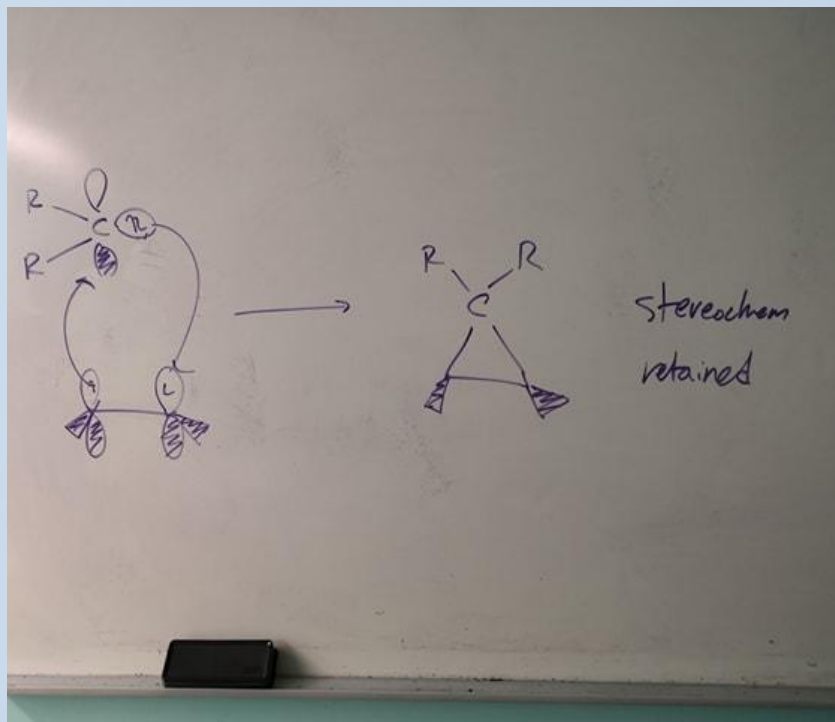 R
C
R
R R
C
stereochem
retained